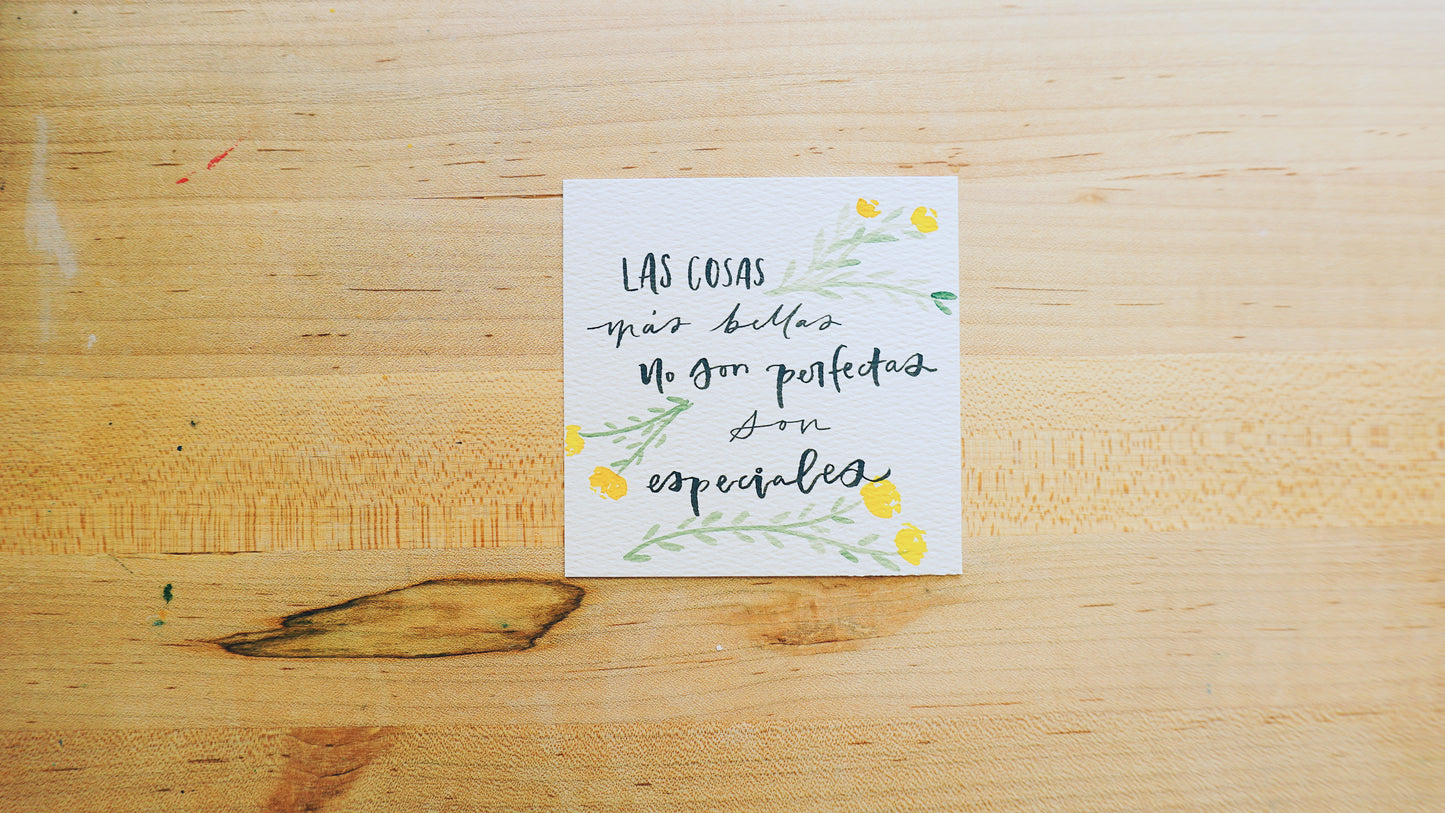 LAS COSAS
más bellas
No son perfectas
son
especiales